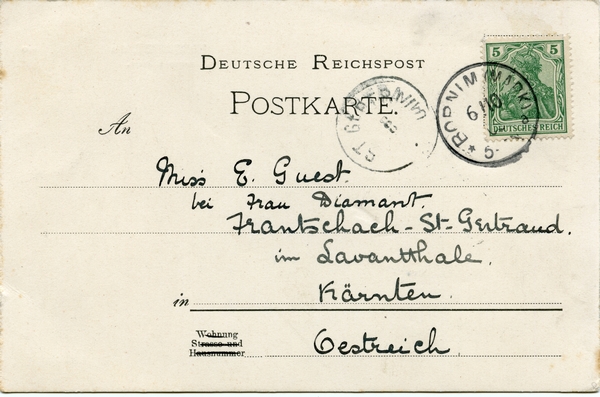 DEUTSCHE REICHSPOST
POSTKARTE.
5 5
DEUTSCHES REICH
BORNIM (MARK)
An
Miss E. Guest
bei Frau Diamant.
Frantschach-St-Gertraud.
im Lavantthale.
in Kärnten.
Wohnung
Strasse und
Hausnummer
Oestreich.